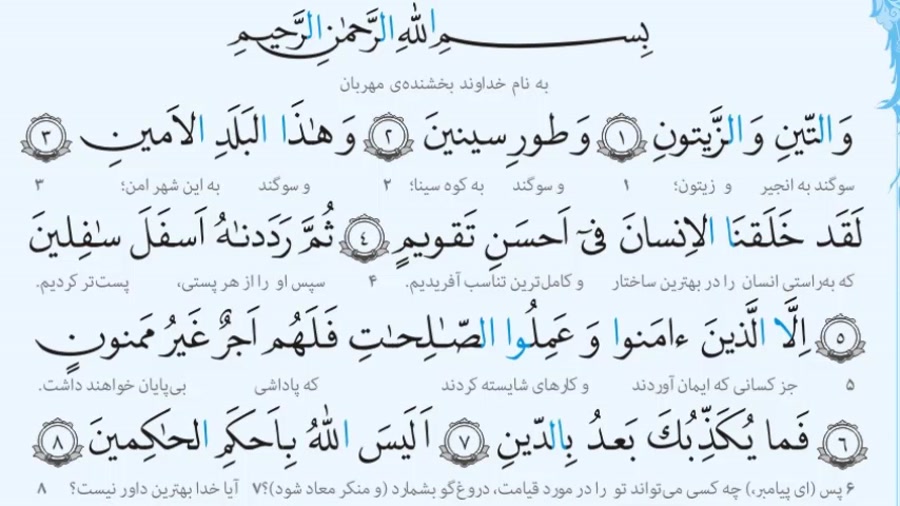 بِسمِ اللهِ الرَّحمٰنِ الرَّحیمِ
به نام خداوند بخشنده‌ی مهربان
وَ التّینِ وَ الزَّیتونِ ۱ وَ طورِ سینینَ ۲ وَ هٰذَا البَلَدِ الاَمینِ ۳
سوگند به انجیر و زیتون؛ ۱ و سوگند به کوه سینا؛ ۲ و سوگند به این شهر امن؛ ۳
لَقَد خَلَقنَا الاِنسانَ فی اَحسَنِ تَقویمٍ ۴ ثُمَّ رَدَدنٰهُ اَسفَلَ سٰفِلینَ
که به‌راستی انسان را در بهترین ساختار و کامل‌ترین تناسب آفریدیم. ۴ سپس او را از هر پستی، پست‌تر کردیم.
۵ اِلَّا الَّذینَ ءامَنوا وَ عَمِلُوا الصّٰلِحٰتِ فَلَهُم اَجرٌ غَیرُ مَمنونٍ
۵ جز کسانی که ایمان آوردند و کارهای شایسته کردند که پاداشی بی‌پایان خواهند داشت.
۶ فَما یُکَذِّبُکَ بَعدُ بِالدّینِ ۷ اَلَیسَ اللهُ بِاَحکَمِ الحٰکِمینَ ۸
۶ پس (ای پیامبر،) چه کسی می‌تواند تو را در مورد قیامت، دروغ‌گو بشمارد (و منکر معاد شود)؟ ۷ آیا خدا بهترین داور نیست؟ ۸